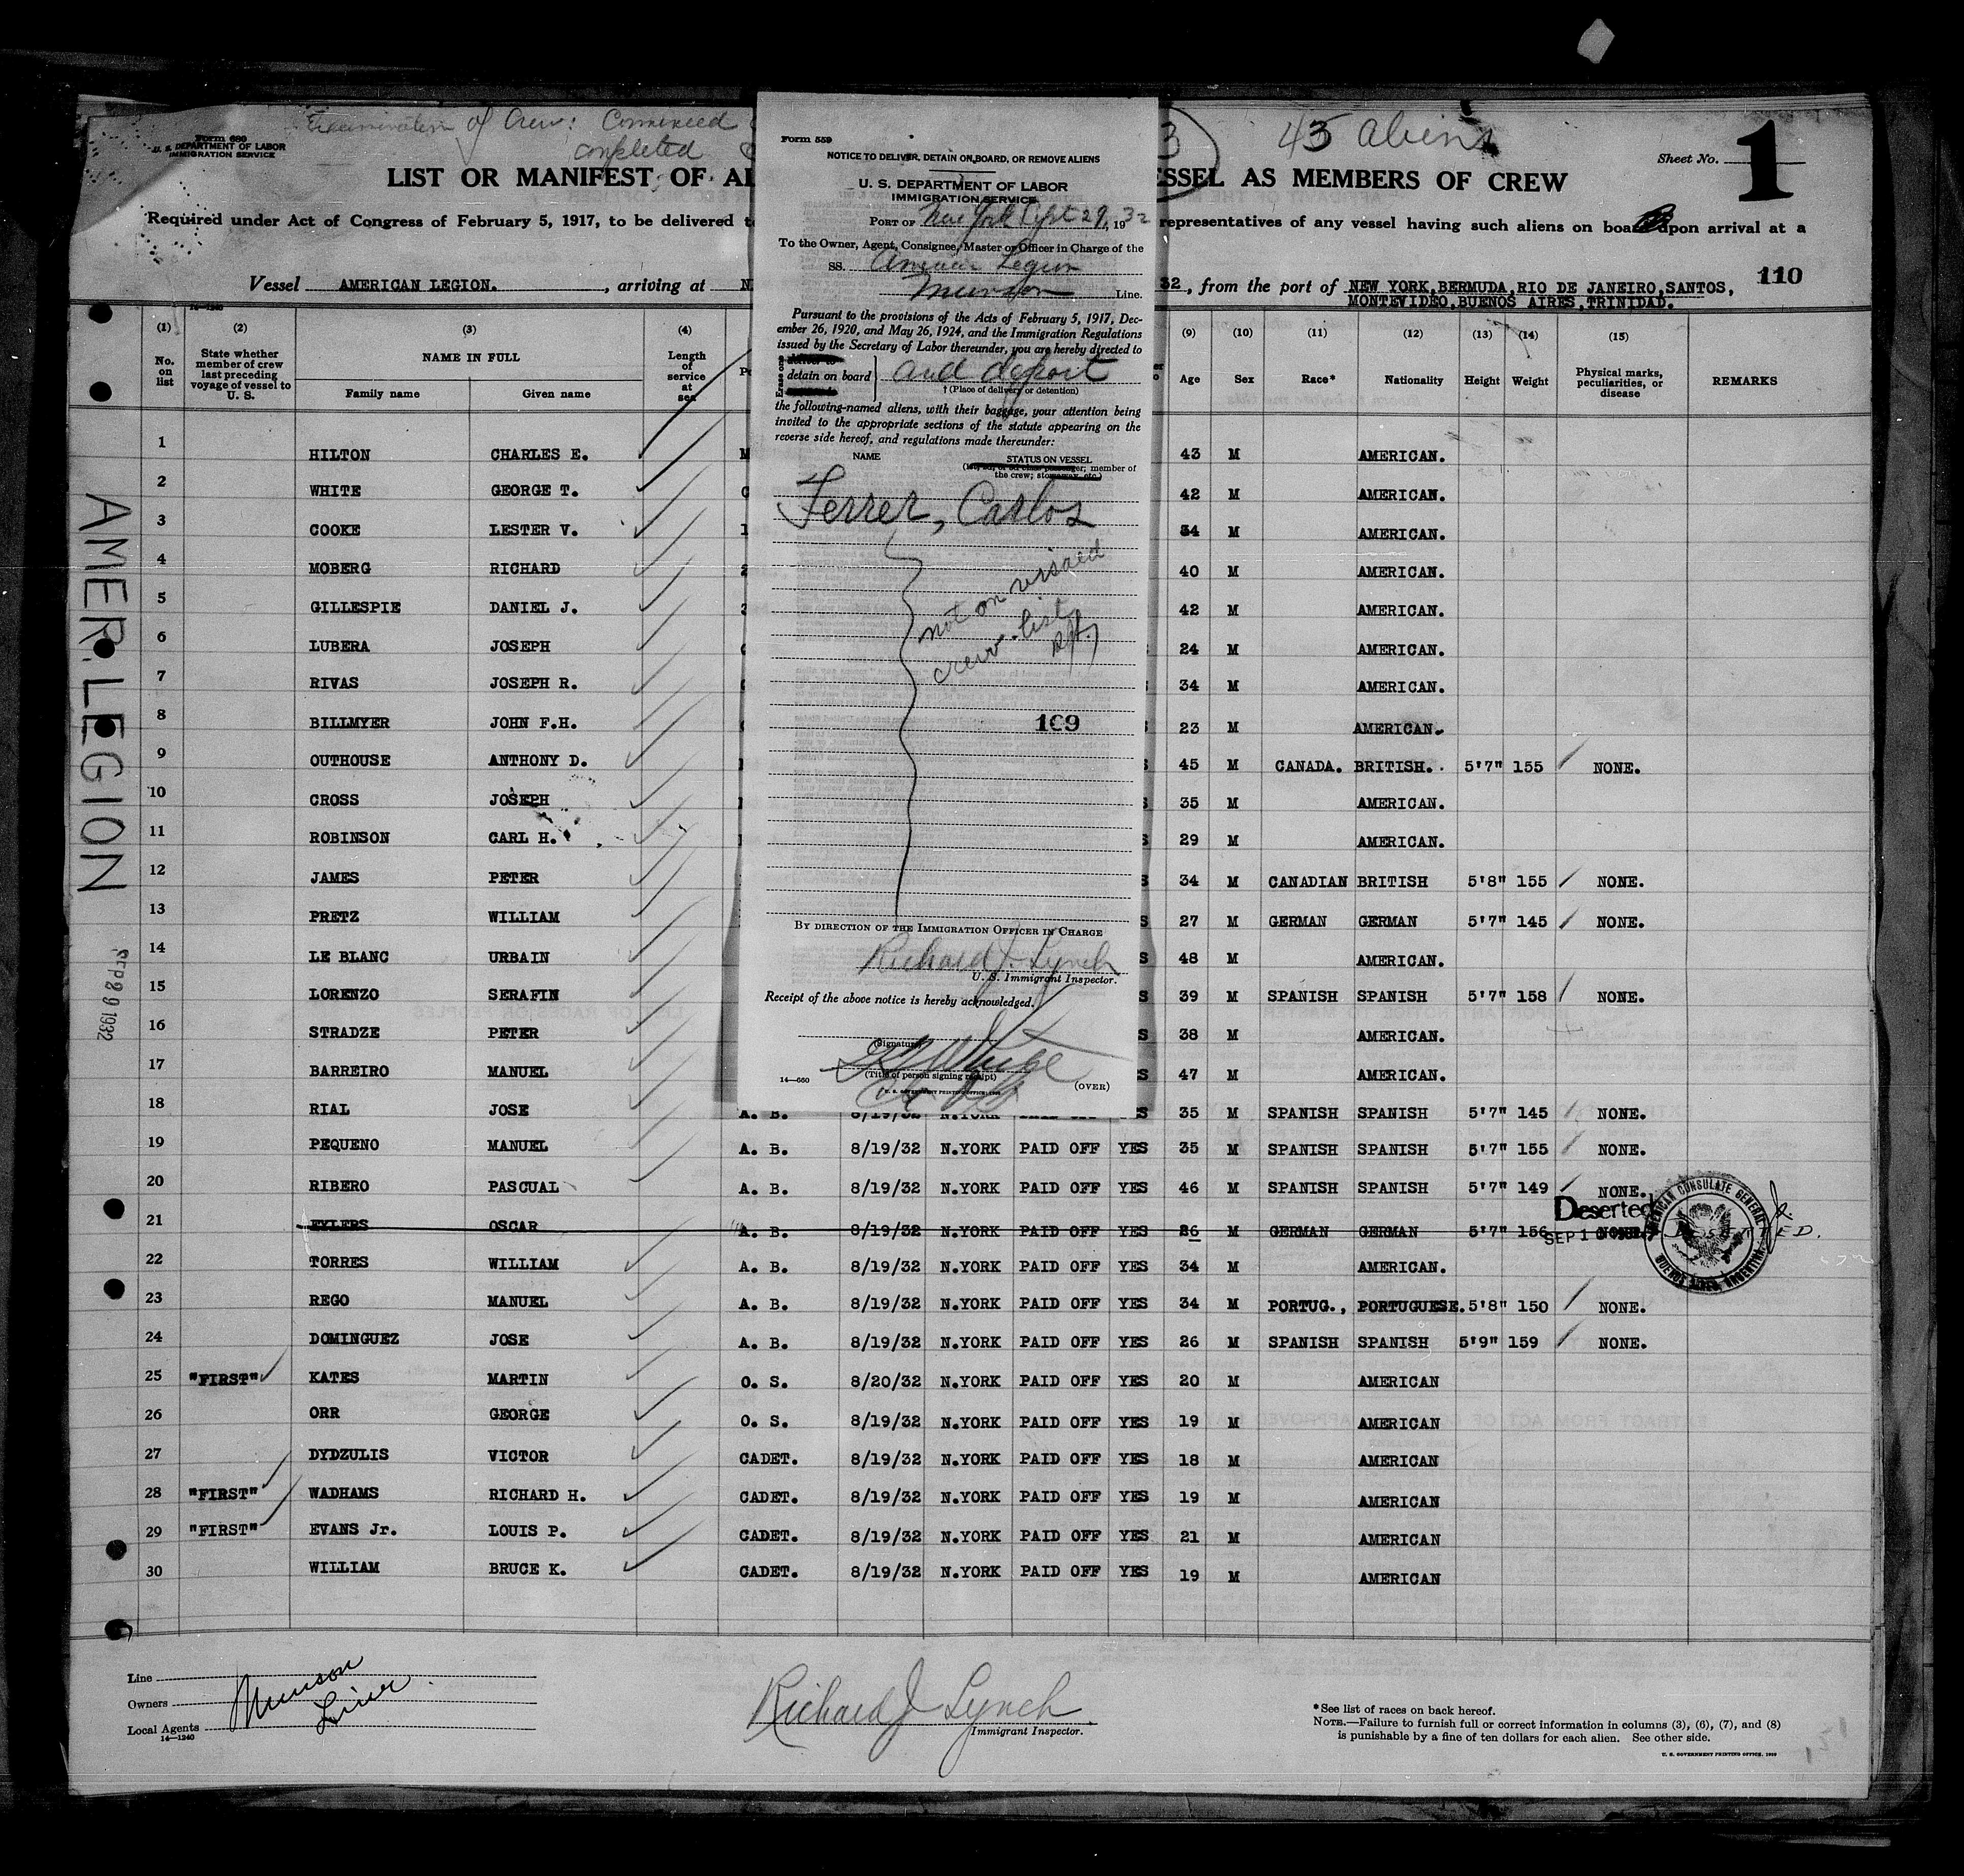 Form 680
U. S. DEPARTMENT OF LABOR
IMMIGRATION SERVICE
Examination of Crew: Commenced
completed
3
45 aliens
Sheet No. 1
LIST OR MANIFEST OF AL
ESSEL AS MEMBERS OF CREW
Required under Act of Congress of February 5, 1917, to be delivered t
representatives of any vessel having such aliens on board upon arrival at a
Vessel AMERICAN LEGION. , arriving at N
32, from the port of NEW YORK,BERMUDA,RIO DE JANEIRO,SANTOS,
MONTEVIDEO,BUENOS AIRES,TRINIDAD.
110
14-1240
Form 559
NOTICE TO DELIVER, DETAIN ON BOARD, OR REMOVE ALIENS
U. S. DEPARTMENT OF LABOR
IMMIGRATION SERVICE
PORT OF New York Sept 29, 1932
To the Owner, Agent, Consignee, Master or Officer in Charge of the
SS. American Legion
Munson Line.
Pursuant to the provisions of the Acts of February 5, 1917, Dec-
ember 26, 1920, and May 26, 1924, and the Immigration Regulations
issued by the Secretary of Labor thereunder, you are hereby directed to
Erase one
deliver to
detain on board } and deport
† (Place of delivery or detention)
the following-named aliens, with their baggage, your attention being
invited to the appropriate sections of the statute appearing on the
reverse side hereof, and regulations made thereunder:
NAME STATUS ON VESSEL
(1st, 2d, or 3d class passenger; member of
the crew; stowaway, etc.)
Ferrer, Carlos
not on visaed
crew-list
109
BY DIRECTION OF THE IMMIGRATION OFFICER IN CHARGE
Richard J. Lynch
U. S. Immigrant Inspector.
Receipt of the above notice is hereby acknowledged.
(Signature)
(Title of person signing receipt)
14—660
U. S. GOVERNMENT PRINTING OFFICE:
(OVER)
(1) (2) (3) (4) (9) (10) (11) (12) (13) (14) (15)
No. on list
State whether member of crew last preceding voyage of vessel to U. S.
NAME IN FULL
Family name Given name
Length of service at sea
Age Sex Race* Nationality Height Weight
Physical marks, peculiarities, or disease
REMARKS
1 HILTON CHARLES E. M 43 M AMERICAN.
2 WHITE GEORGE T. 42 M AMERICAN.
3 COOKE LESTER V. 1 34 M AMERICAN.
4 MOBERG RICHARD 2 40 M AMERICAN.
5 GILLESPIE DANIEL J. 42 M AMERICAN.
6 LUBERA JOSEPH 24 M AMERICAN.
7 RIVAS JOSEPH R. 34 M AMERICAN.
8 BILLMYER JOHN F.H. 23 M AMERICAN.
9 OUTHOUSE ANTHONY D. 45 M CANADA. BRITISH. 5'7" 155 NONE.
10 CROSS JOSEPH 35 M AMERICAN.
11 ROBINSON CARL H. S 29 M AMERICAN.
12 JAMES PETER S 34 M CANADIAN BRITISH 5'8" 155 NONE.
13 PRETZ WILLIAM S 27 M GERMAN GERMAN 5'7" 145 NONE.
14 LE BLANC URBAIN S 48 M AMERICAN.
15 LORENZO SERAFIN S 39 M SPANISH SPANISH 5'7" 158 NONE.
16 STRADZE PETER S 38 M AMERICAN.
17 BARREIRO MANUEL S 47 M AMERICAN.
18 RIAL JOSE A. B. 8/19/32 N.YORK PAID OFF S 35 M SPANISH SPANISH 5'7" 145 NONE.
19 PEQUENO MANUEL A. B. 8/19/32 N.YORK PAID OFF YES 35 M SPANISH SPANISH 5'7" 155 NONE.
20 RIBERO PASCUAL A. B. 8/19/32 N.YORK PAID OFF YES 46 M SPANISH SPANISH 5'7" 149 NONE.
21 EYLERS OSCAR A. B. 8/19/32 N.YORK PAID OFF YES 26 M GERMAN GERMAN 5'7" 156 NONE. DESERTED.
Deserted
SEP 1
AMERICAN CONSULATE GENERAL
BUENOS AIRES, ARGENTINA
22 TORRES WILLIAM A. B. 8/19/32 N.YORK PAID OFF YES 34 M AMERICAN.
23 REGO MANUEL A. B. 8/19/32 N.YORK PAID OFF YES 34 M PORTUG., PORTUGUESE. 5'8" 150 NONE.
24 DOMINGUEZ JOSE A. B. 8/19/32 N.YORK PAID OFF YES 26 M SPANISH SPANISH 5'9" 159 NONE.
25 "FIRST" KATES MARTIN O. S. 8/20/32 N.YORK PAID OFF YES 20 M AMERICAN
26 ORR GEORGE O. S. 8/19/32 N.YORK PAID OFF YES 19 M AMERICAN
27 DYDZULIS VICTOR CADET. 8/19/32 N.YORK PAID OFF YES 18 M AMERICAN
28 "FIRST" WADHAMS RICHARD H. CADET. 8/19/32 N.YORK PAID OFF YES 19 M AMERICAN
29 "FIRST" EVANS Jr. LOUIS P. CADET. 8/19/32 N.YORK PAID OFF YES 21 M AMERICAN
30 WILLIAM BRUCE K. CADET. 8/19/32 N.YORK PAID OFF YES 19 M AMERICAN
AMER. LEGION
SEP 29 1932
Line
Owners
Local Agents
Munson
Line.
14—1240
Richard J Lynch
Immigrant Inspector.
*See list of races on back hereof.
NOTE.—Failure to furnish full or correct information in columns (3), (6), (7), and (8)
is punishable by a fine of ten dollars for each alien. See other side.
U. S. GOVERNMENT PRINTING OFFICE.